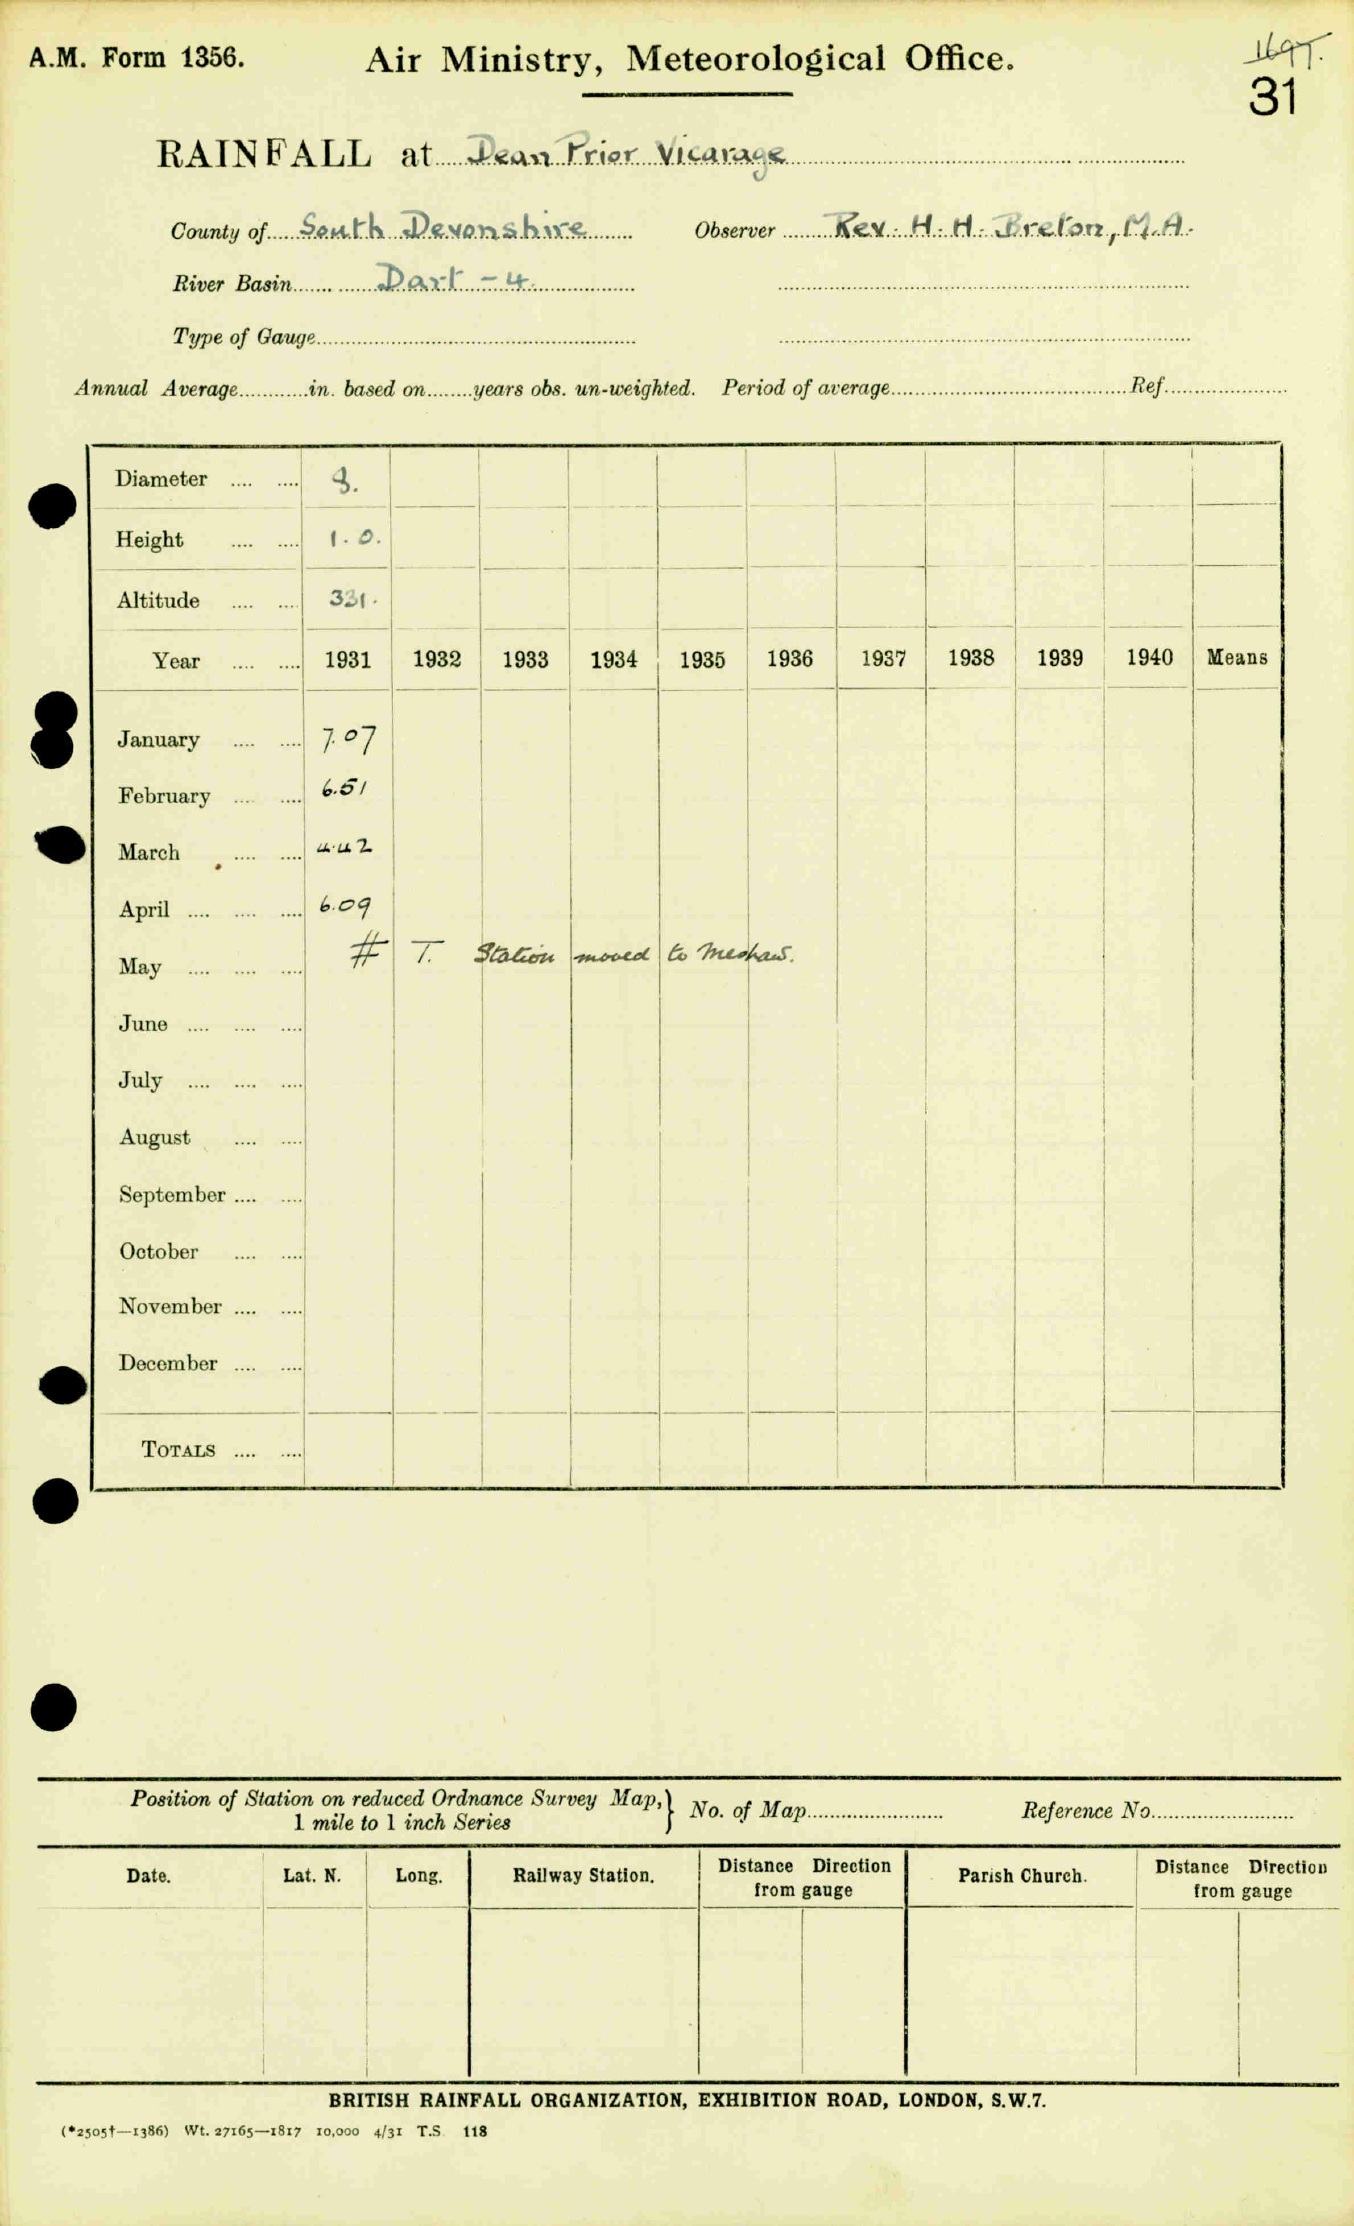 A.M. Form 1356. Air Ministry, Meteorological Office. 1697.
31
RAINFALL at Dean Prior Vicarage
County of South Devonshire Observer Rev. H. H. Breton, M.A.
River Basin Dart - 4.
Type of Gauge
Annual Average in. based on years obs. un-weighted. Period of average Ref.
Diameter 8.
Height 1.0.
Altitude 331.
Year 1931 1932 1933 1934 1935 1936 1937 1938 1939 1940 Means
January 7.07
February 6.51
March 4.42
April 6.09
May # T. Station moved to Meshaw.
June
July
August
September
October
November
December
TOTALS
Position of Station on reduced Ordnance Survey Map, } No. of Map Reference No.
1 mile to 1 inch Series
Date. Lat. N. Long. Railway Station. Distance Direction from gauge Parish Church. Distance Direction from gauge
BRITISH RAINFALL ORGANIZATION, EXHIBITION ROAD, LONDON, S.W.7.
(*2505†—1386) Wt. 27165—1817 10,000 4/31 T.S. 118